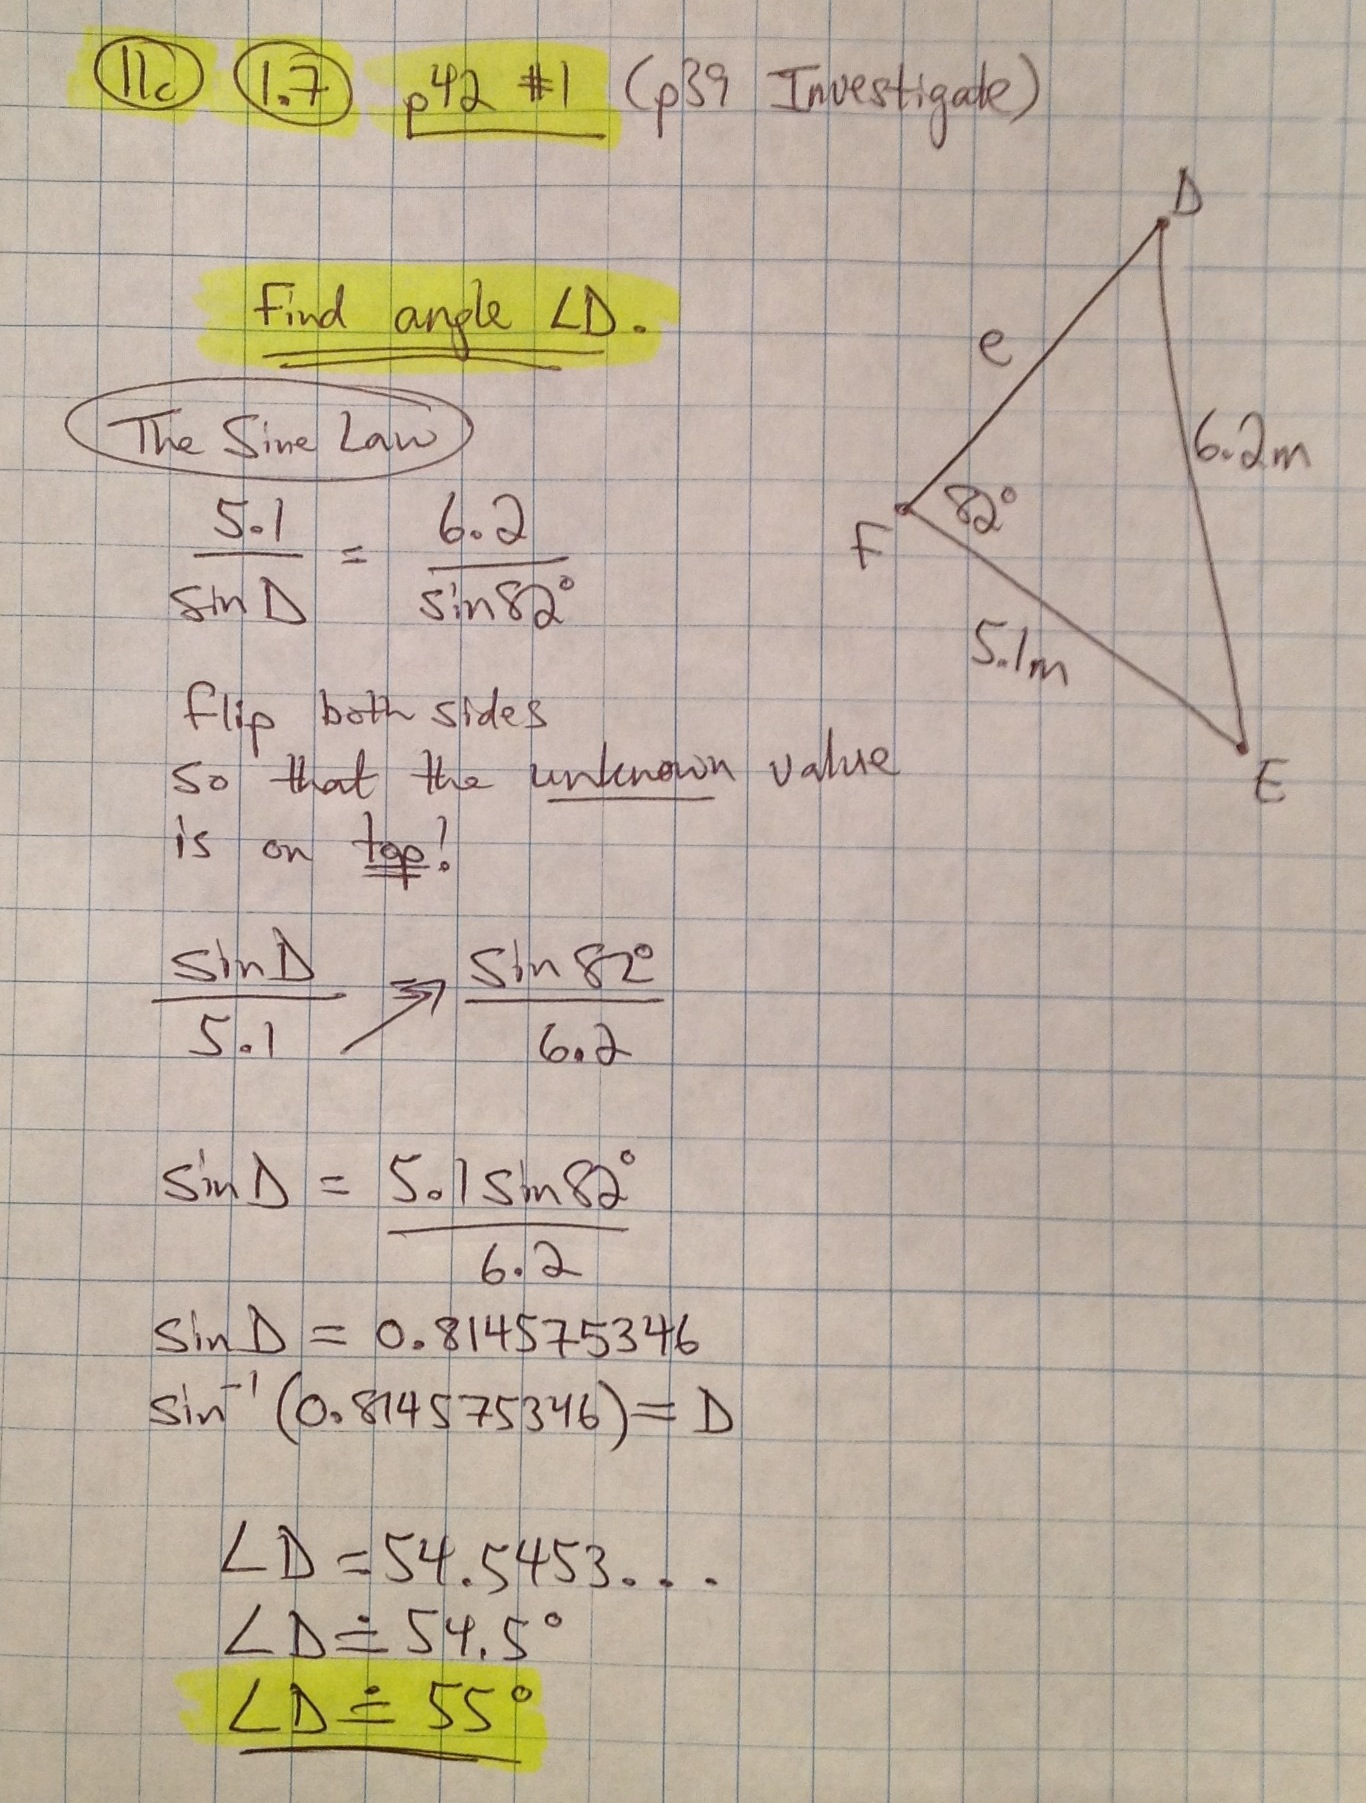 11c 1.7 p42 #1 (p39 Investigate)
Find angle ∠D.
The Sine Law
5.1 / sin D = 6.2 / sin 82°
flip both sides
so that the unknown value
is on top!
sin D / 5.1 = sin 82° / 6.2
sin D = 5.1 sin 82° / 6.2
sin D = 0.814575346
sin⁻¹(0.814575346) = D
∠D = 54.5453...
∠D ≐ 54.5°
∠D ≐ 55°
D
e
6.2m
F
82°
5.1m
E